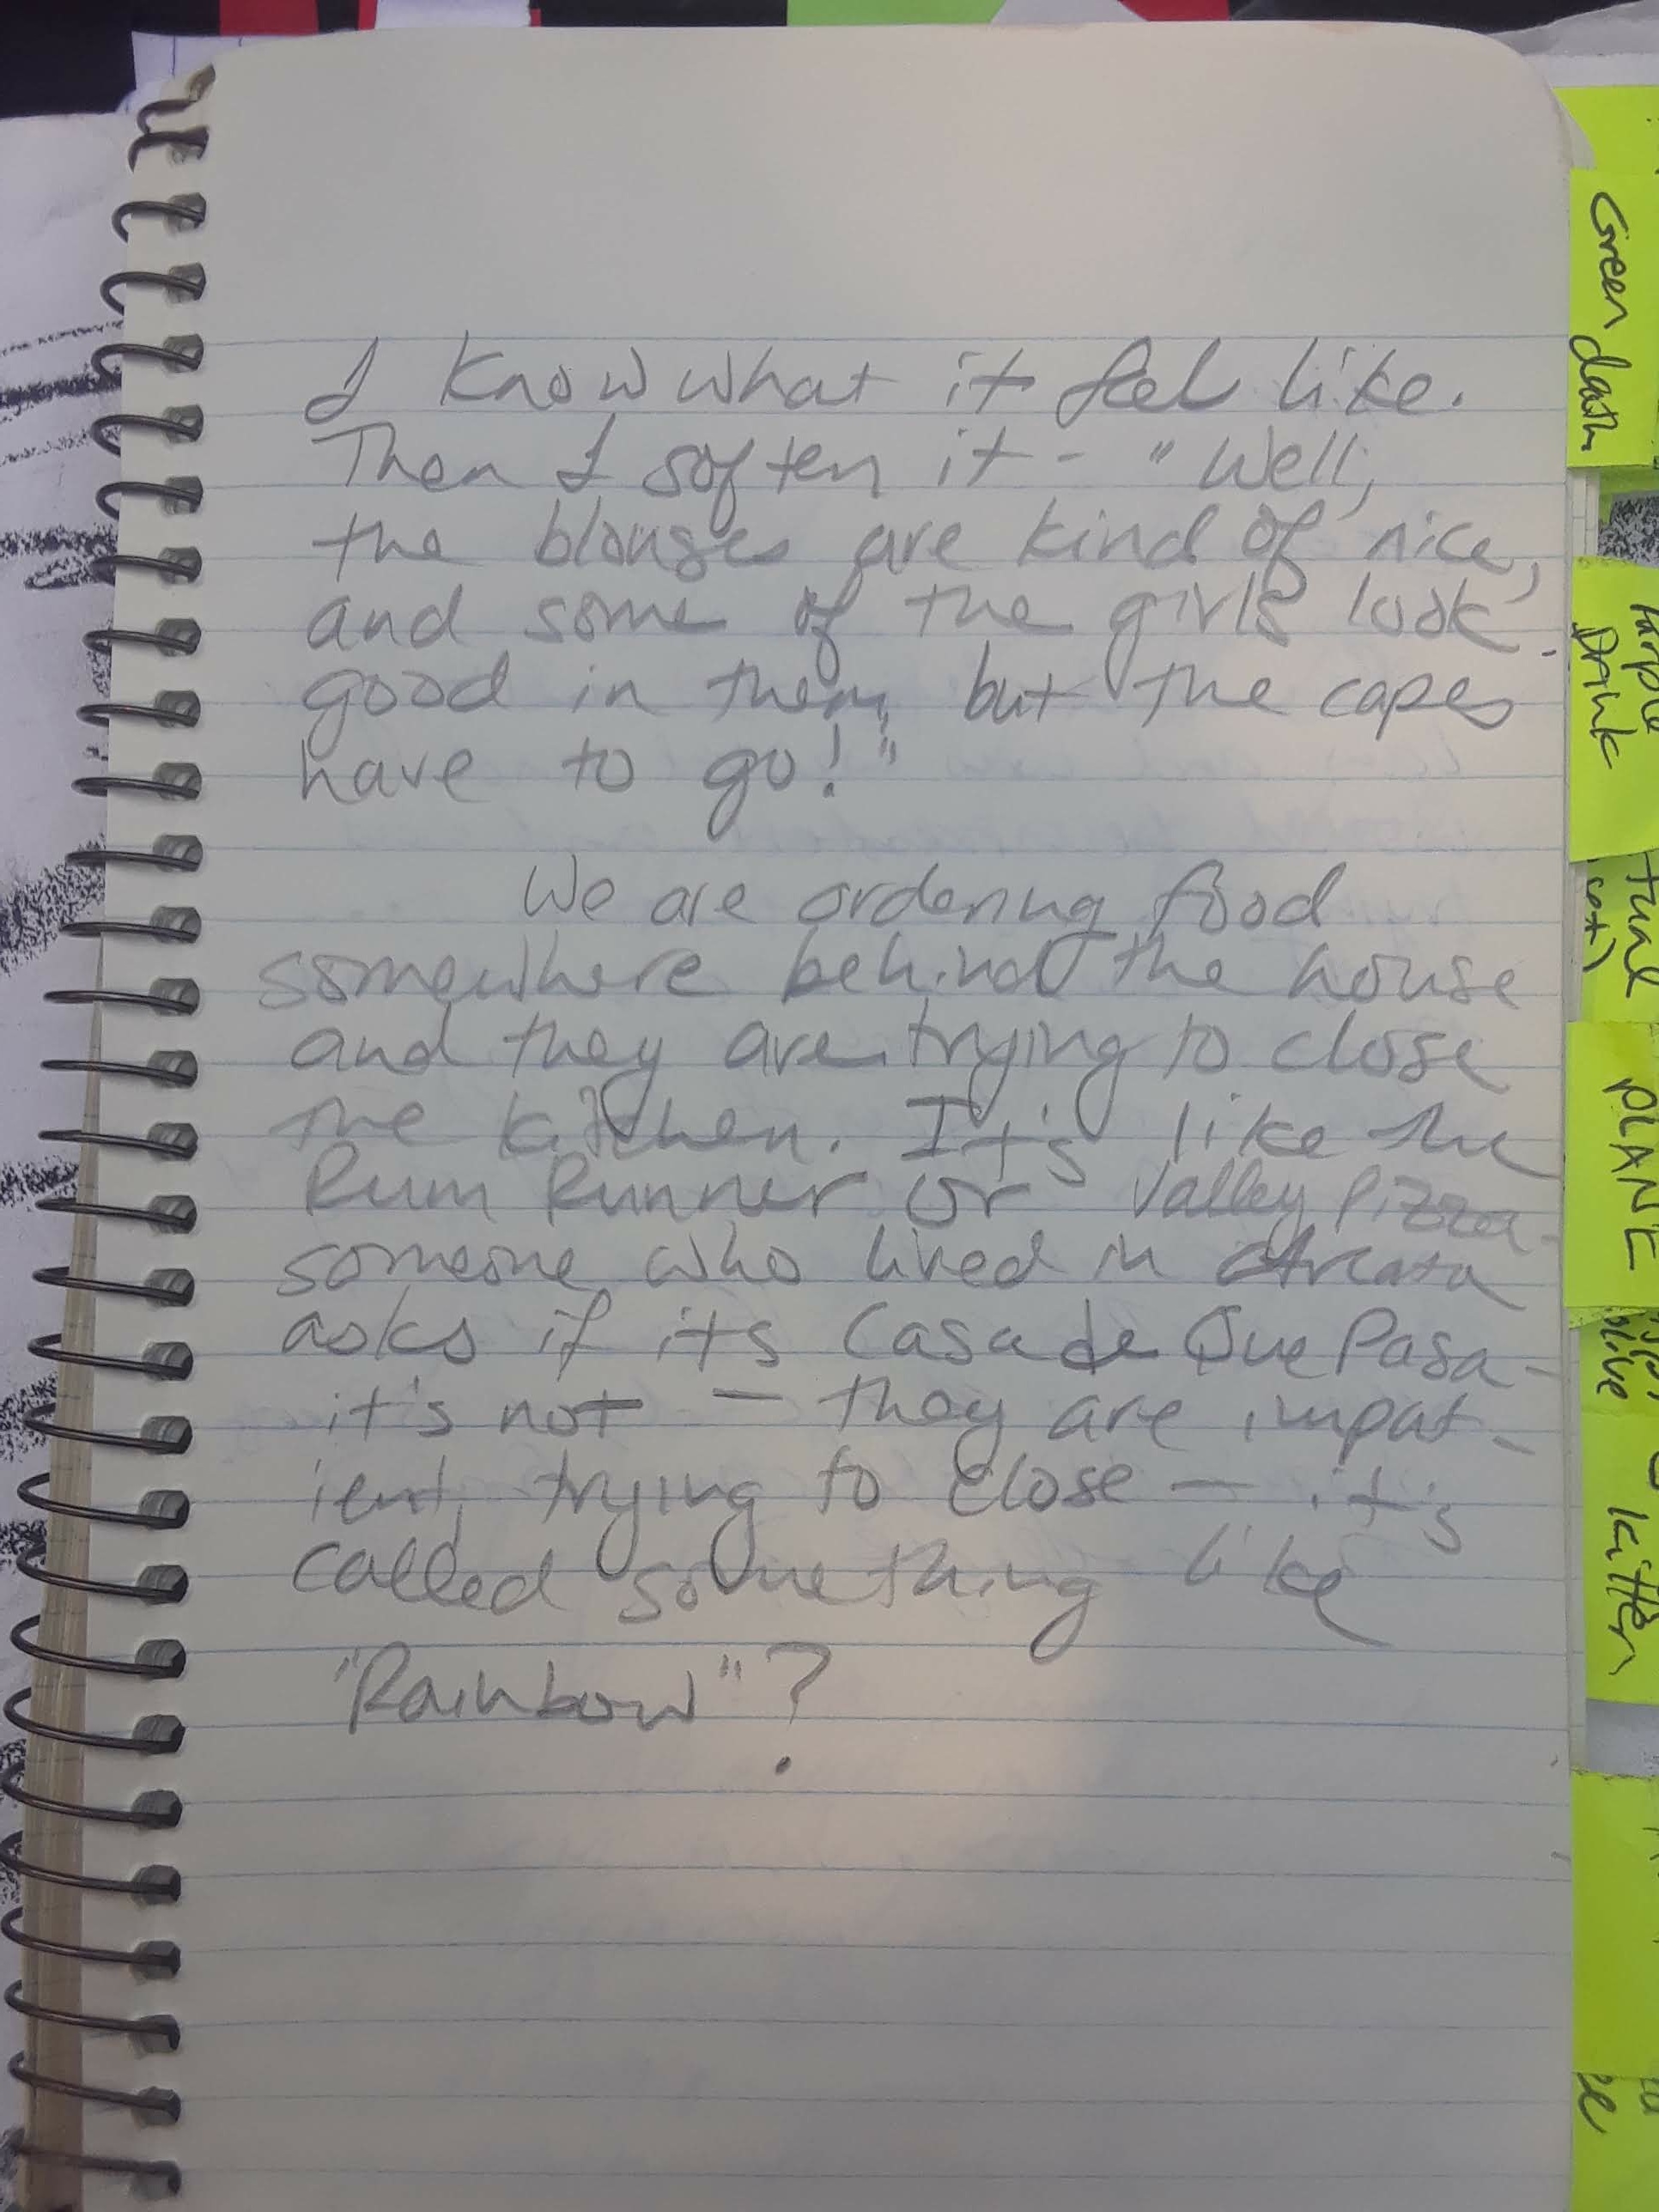 I know what it feel like.
Then I soften it - "Well,
the blouses are kind of nice,
and some of the girls look
good in them, but the capes
have to go!"
We are ordering food
somewhere behind the house
and they are trying to close
the kitchen. It's like the
Rum Runner or Valley Pizza -
someone who lived in Arcata
asks if its Casa de Que Pasa -
it's not - they are impat-
ient, trying to close - it's
called something like
"Rainbow"?
Green
Purple
Drink
PLANE
Kitten